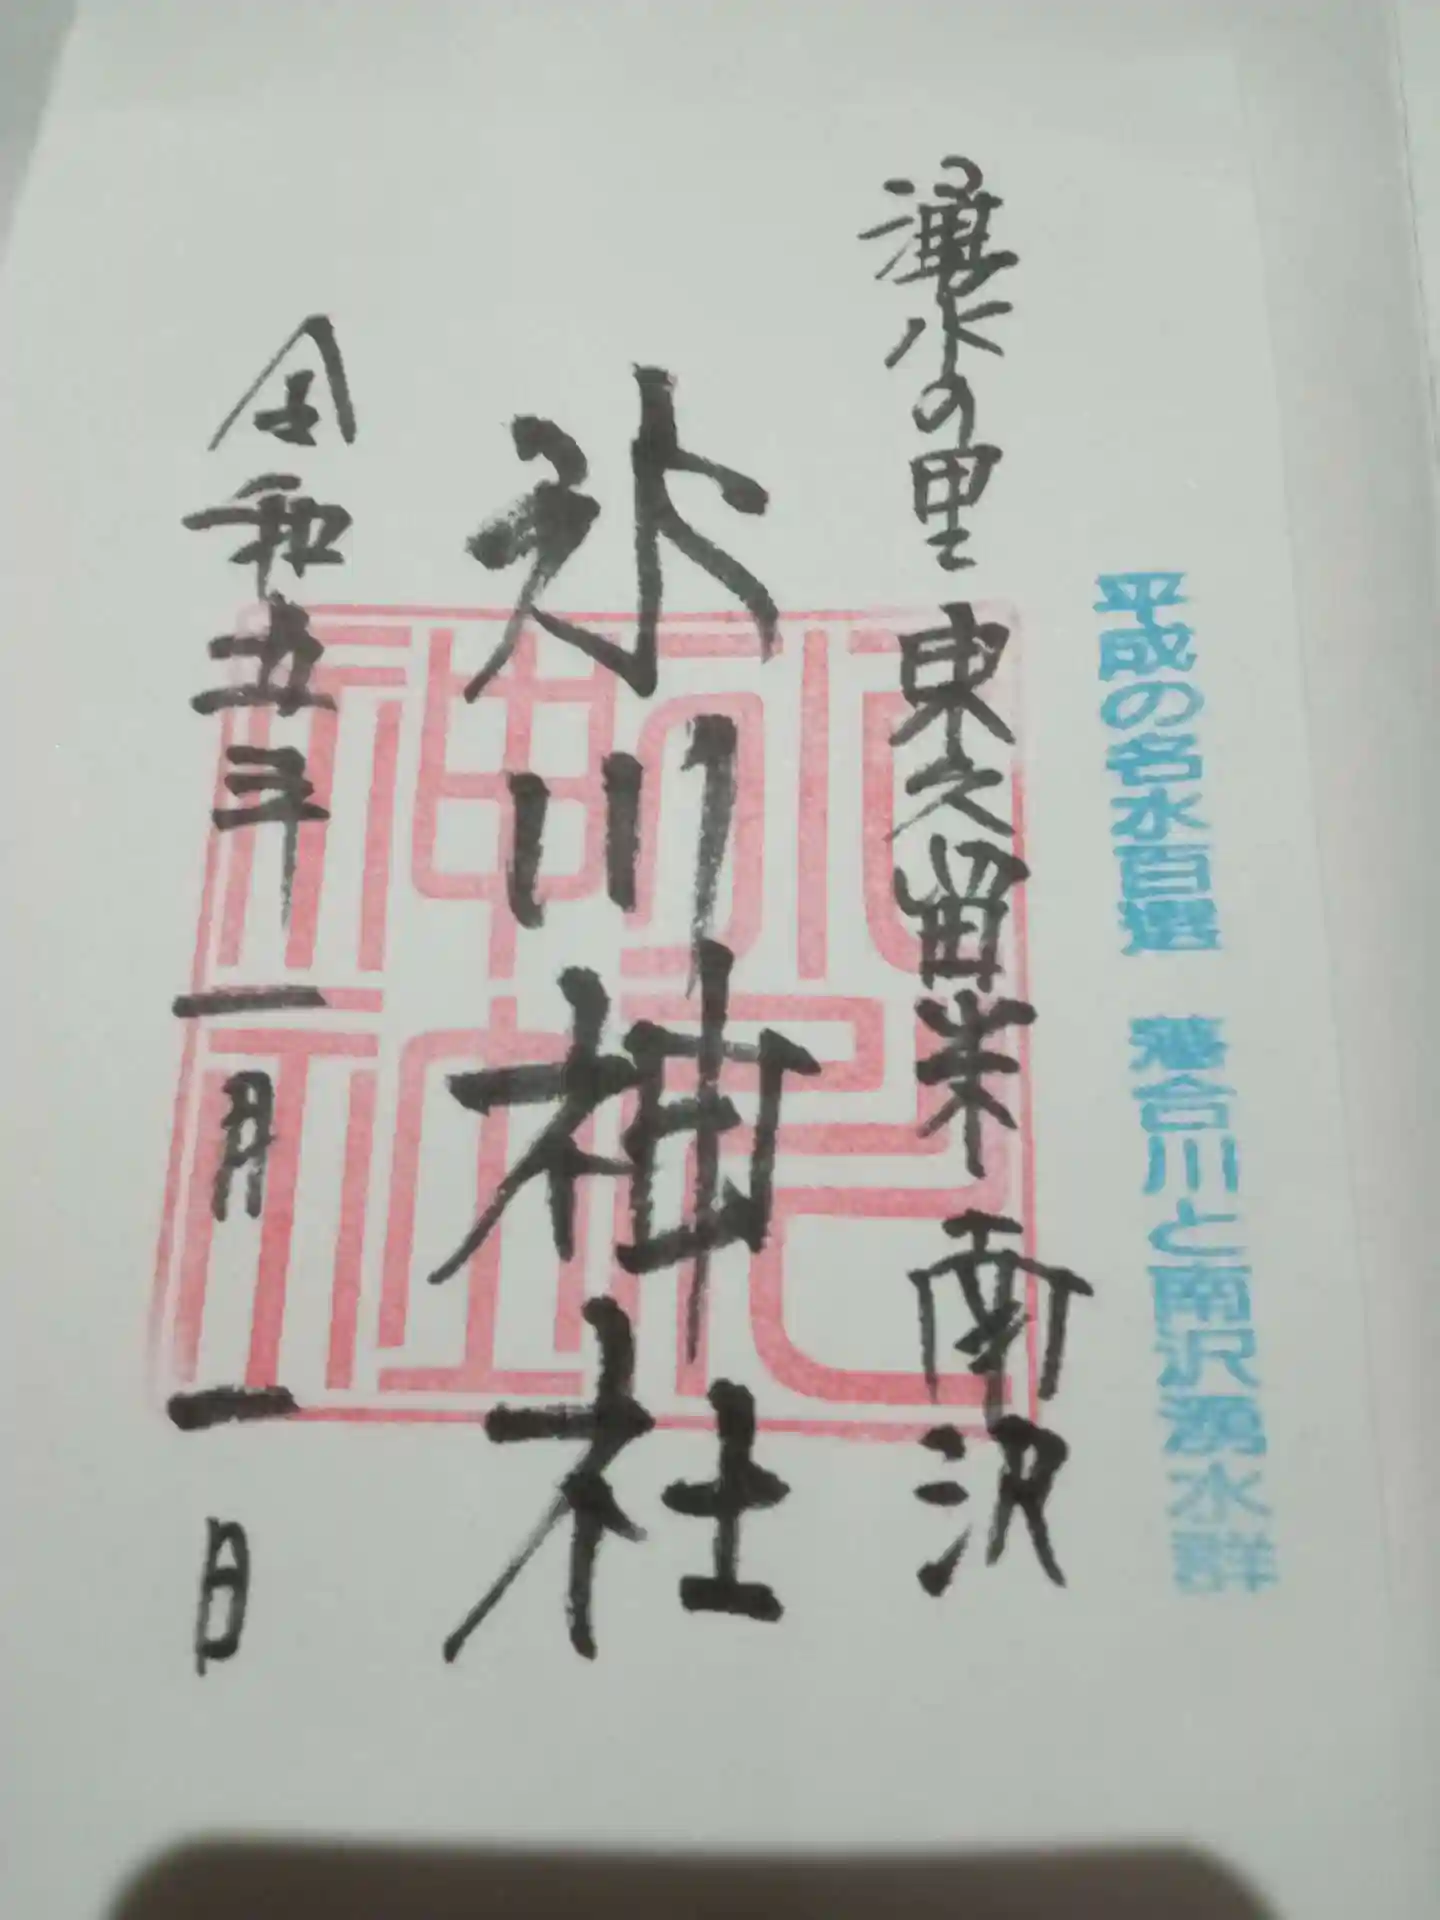 平成の名水百選 落合川と南沢湧水群
湧水の里 東久留米 南沢
氷川神社
令和五年一月一日
氷川
神社